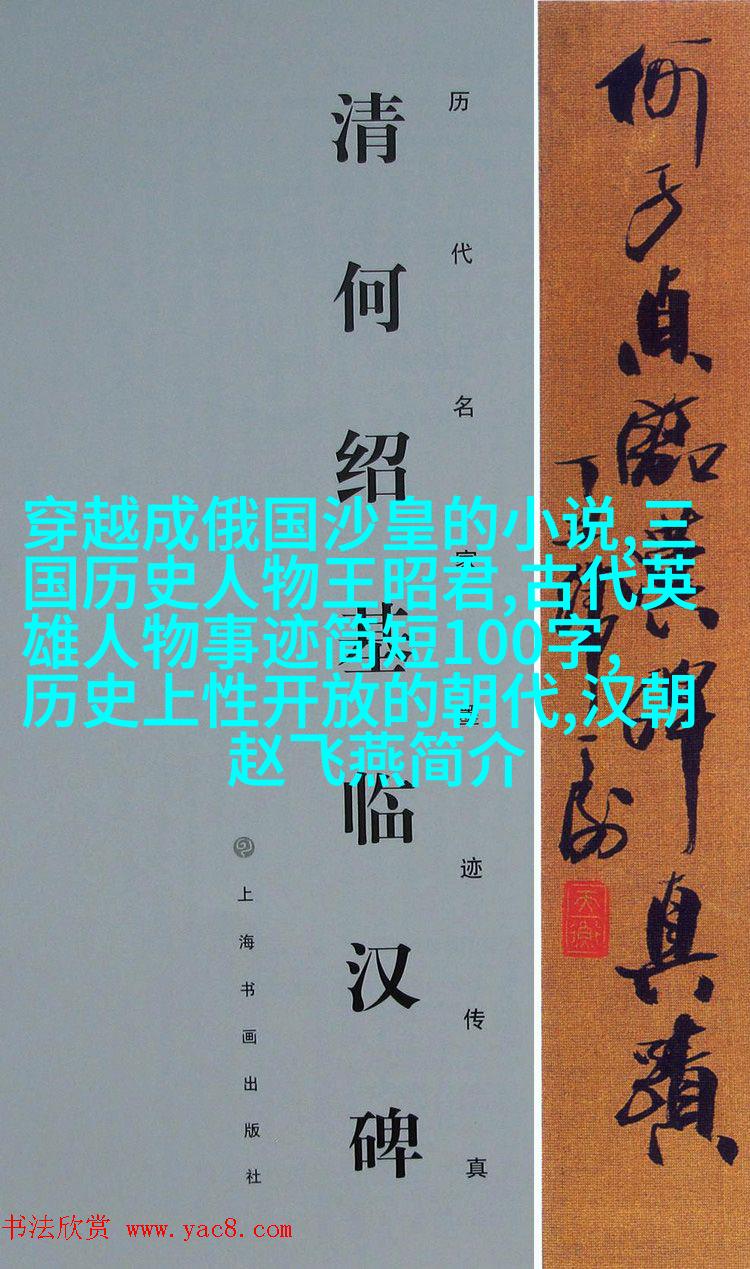 何子貞臨漢碑真蹟
天衡
历代名家墨迹传真
清何绍基临汉碑
上海书画出版社
穿越成俄国沙皇的小说,三
国历史人物王昭君,古代英
雄人物事迹简短100字,
历史上性开放的朝代,汉朝
赵飞燕简介
书法欣赏 www.yac8.com